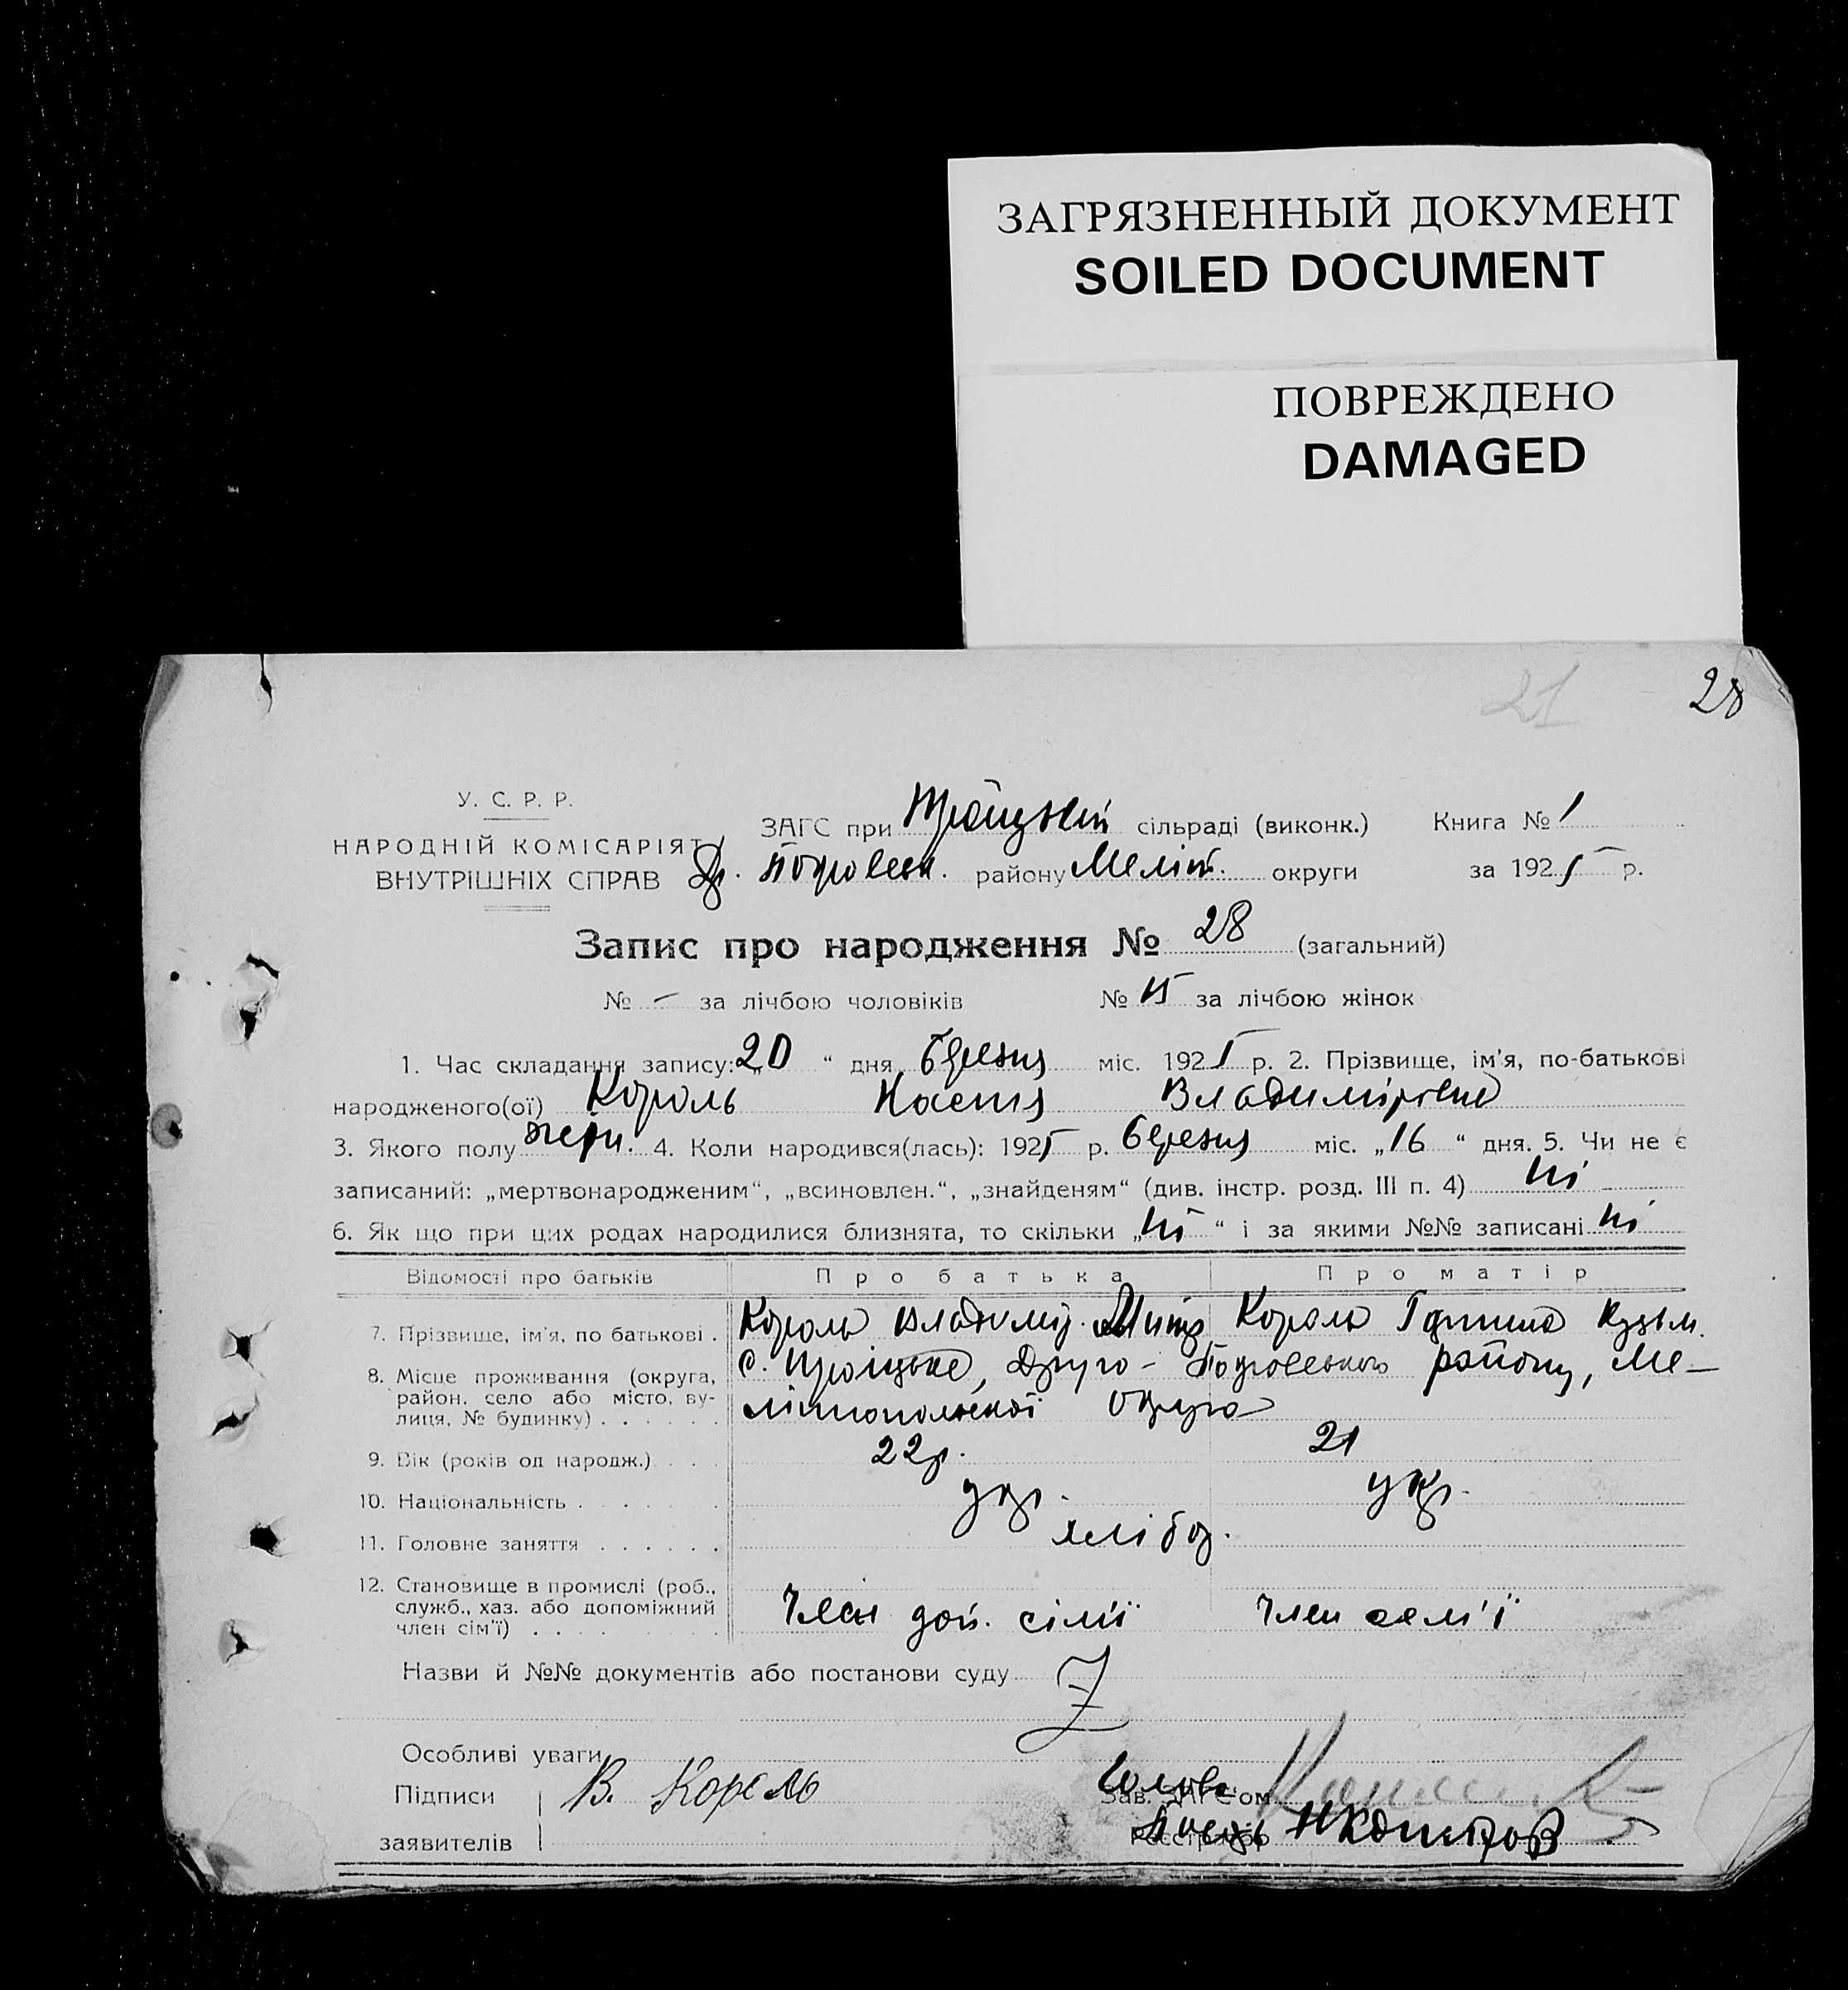 ЗАГРЯЗНЕННЫЙ ДОКУМЕНТ
SOILED DOCUMENT
ПОВРЕЖДЕНО
DAMAGED
21 28
У. С. Р. Р.
НАРОДНІЙ КОМІСАРІЯТ
ВНУТРІШНІХ СПРАВ
ЗАГС при Троіцькій сільраді (виконк.) Книга № 1
Др. Покровськ. району Меліт. округи за 1925 р.
Запис про народження № 28 (загальний)
№ – за лічбою чоловіків № 15 за лічбою жінок
1. Час складання запису: „20“ дня березня міс. 1925 р. 2. Прізвище, ім'я, по-батькові
народженого(ої) Король Настя Владимірівна
3. Якого полу жерн. 4. Коли народився(лась): 1925 р. березня міс. „16“ дня. 5. Чи не є
записаний: „мертвонародженим“, „всиновлен.“, „знайденям“ (див. інстр. розд. III п. 4) ні
6. Як що при цих родах народилися близнята, то скільки „ні“ і за якими №№ записані ні
Відомості про батьків Про батька Про матір
7. Прізвище, ім'я, по батькові . Король Владимір. Король Кузьм.
8. Місце проживання (округа, район, село або місто, вулиця, № будинку) . . . . . . с. Троіцьке, Друго-Покровського району, Ме-
літопольської округа
9. Вік (років од народж.) . . . 22р. 21
10. Національність . . . . . . укр. укр.
11. Головне заняття . . . . . . хлібор.
12. Становище в промислі (роб., служб., хаз. або допоміжний член сім'ї) . . . . . . Член доп. сім'ї Член сем'ї
Назви й №№ документів або постанови суду
Особливі уваги
Підписи В. Король Голова Зав. ЗАГС'ом
заявителів Реєстратор